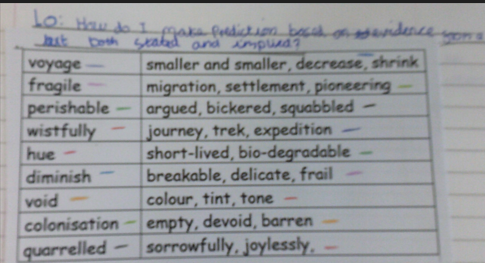 Lo: How do I make prediction based on evidence from a
text both stated and implied?
voyage — smaller and smaller, decrease, shrink
fragile — migration, settlement, pioneering —
perishable — argued, bickered, squabbled —
wistfully — journey, trek, expedition —
hue — short-lived, bio-degradable —
diminish — breakable, delicate, frail —
void — colour, tint, tone —
colonisation — empty, devoid, barren —
quarrelled — sorrowfully, joylessly. —